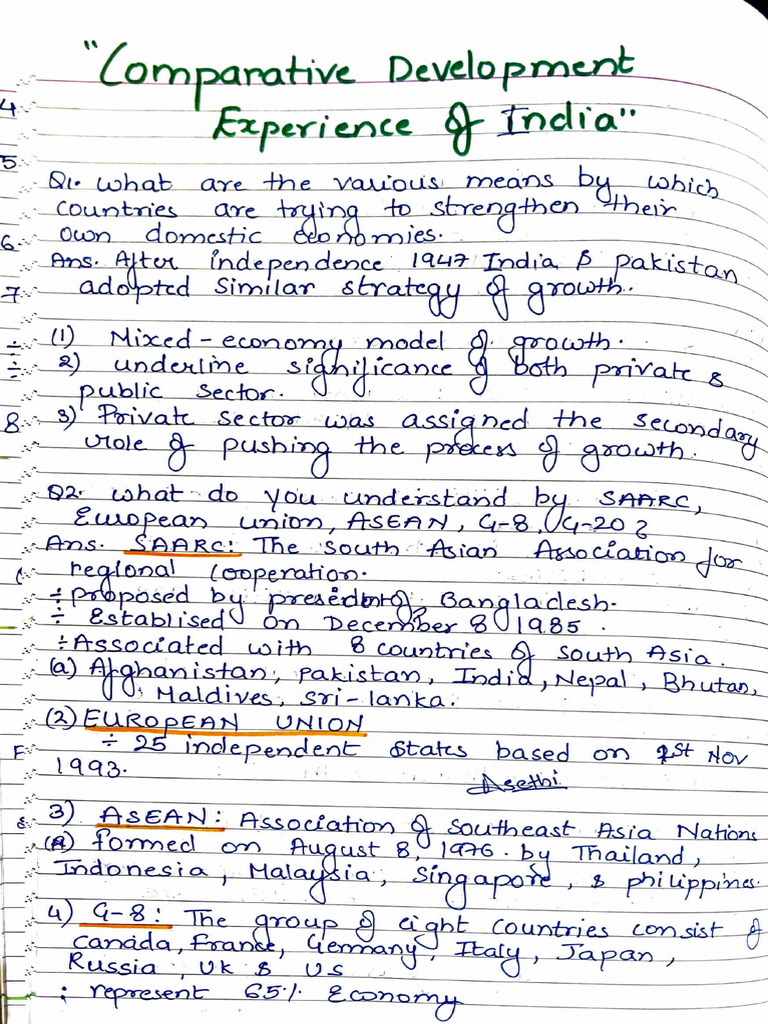 "Comparative Development
Experience of India"
Q1. What are the various means by which
countries are trying to strengthen their
own domestic economies.
Ans. After independence 1947 India & pakistan
adopted similar strategy of growth.
(1) Mixed-economy model of growth.
2) underline significance of both private &
public sector.
3) Private sector was assigned the secondary
role of pushing the process of growth.
Q2. what do you understand by SAARC,
European union, ASEAN, G-8, G-20?
Ans. SAARC: The south Asian Association for
regional cooperation.
÷ proposed by president of Bangladesh.
÷ Establised on December 8, 1985.
÷ Associated with 8 countries of south Asia.
(a) Afghanistan, pakistan, India, Nepal, Bhutan,
Maldives, sri-lanka.
(2) EUROPEAN UNION
÷ 25 independent states based on 1st Nov
1993.
Asethi
3) ASEAN: Association of southeast Asia Nations
(A) formed on August 8, 1976. by Thailand,
Indonesia, Malaysia, Singapore, & philippines.
4) G-8: The group of eight countries consist of
Canada, France, Germany, Italy, Japan,
Russia, UK & US
: represent 65% Economy